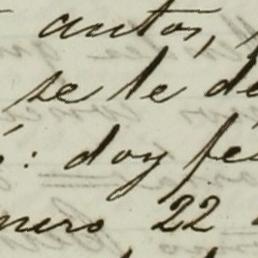 autos,
se le de
: doy fé
nero 22